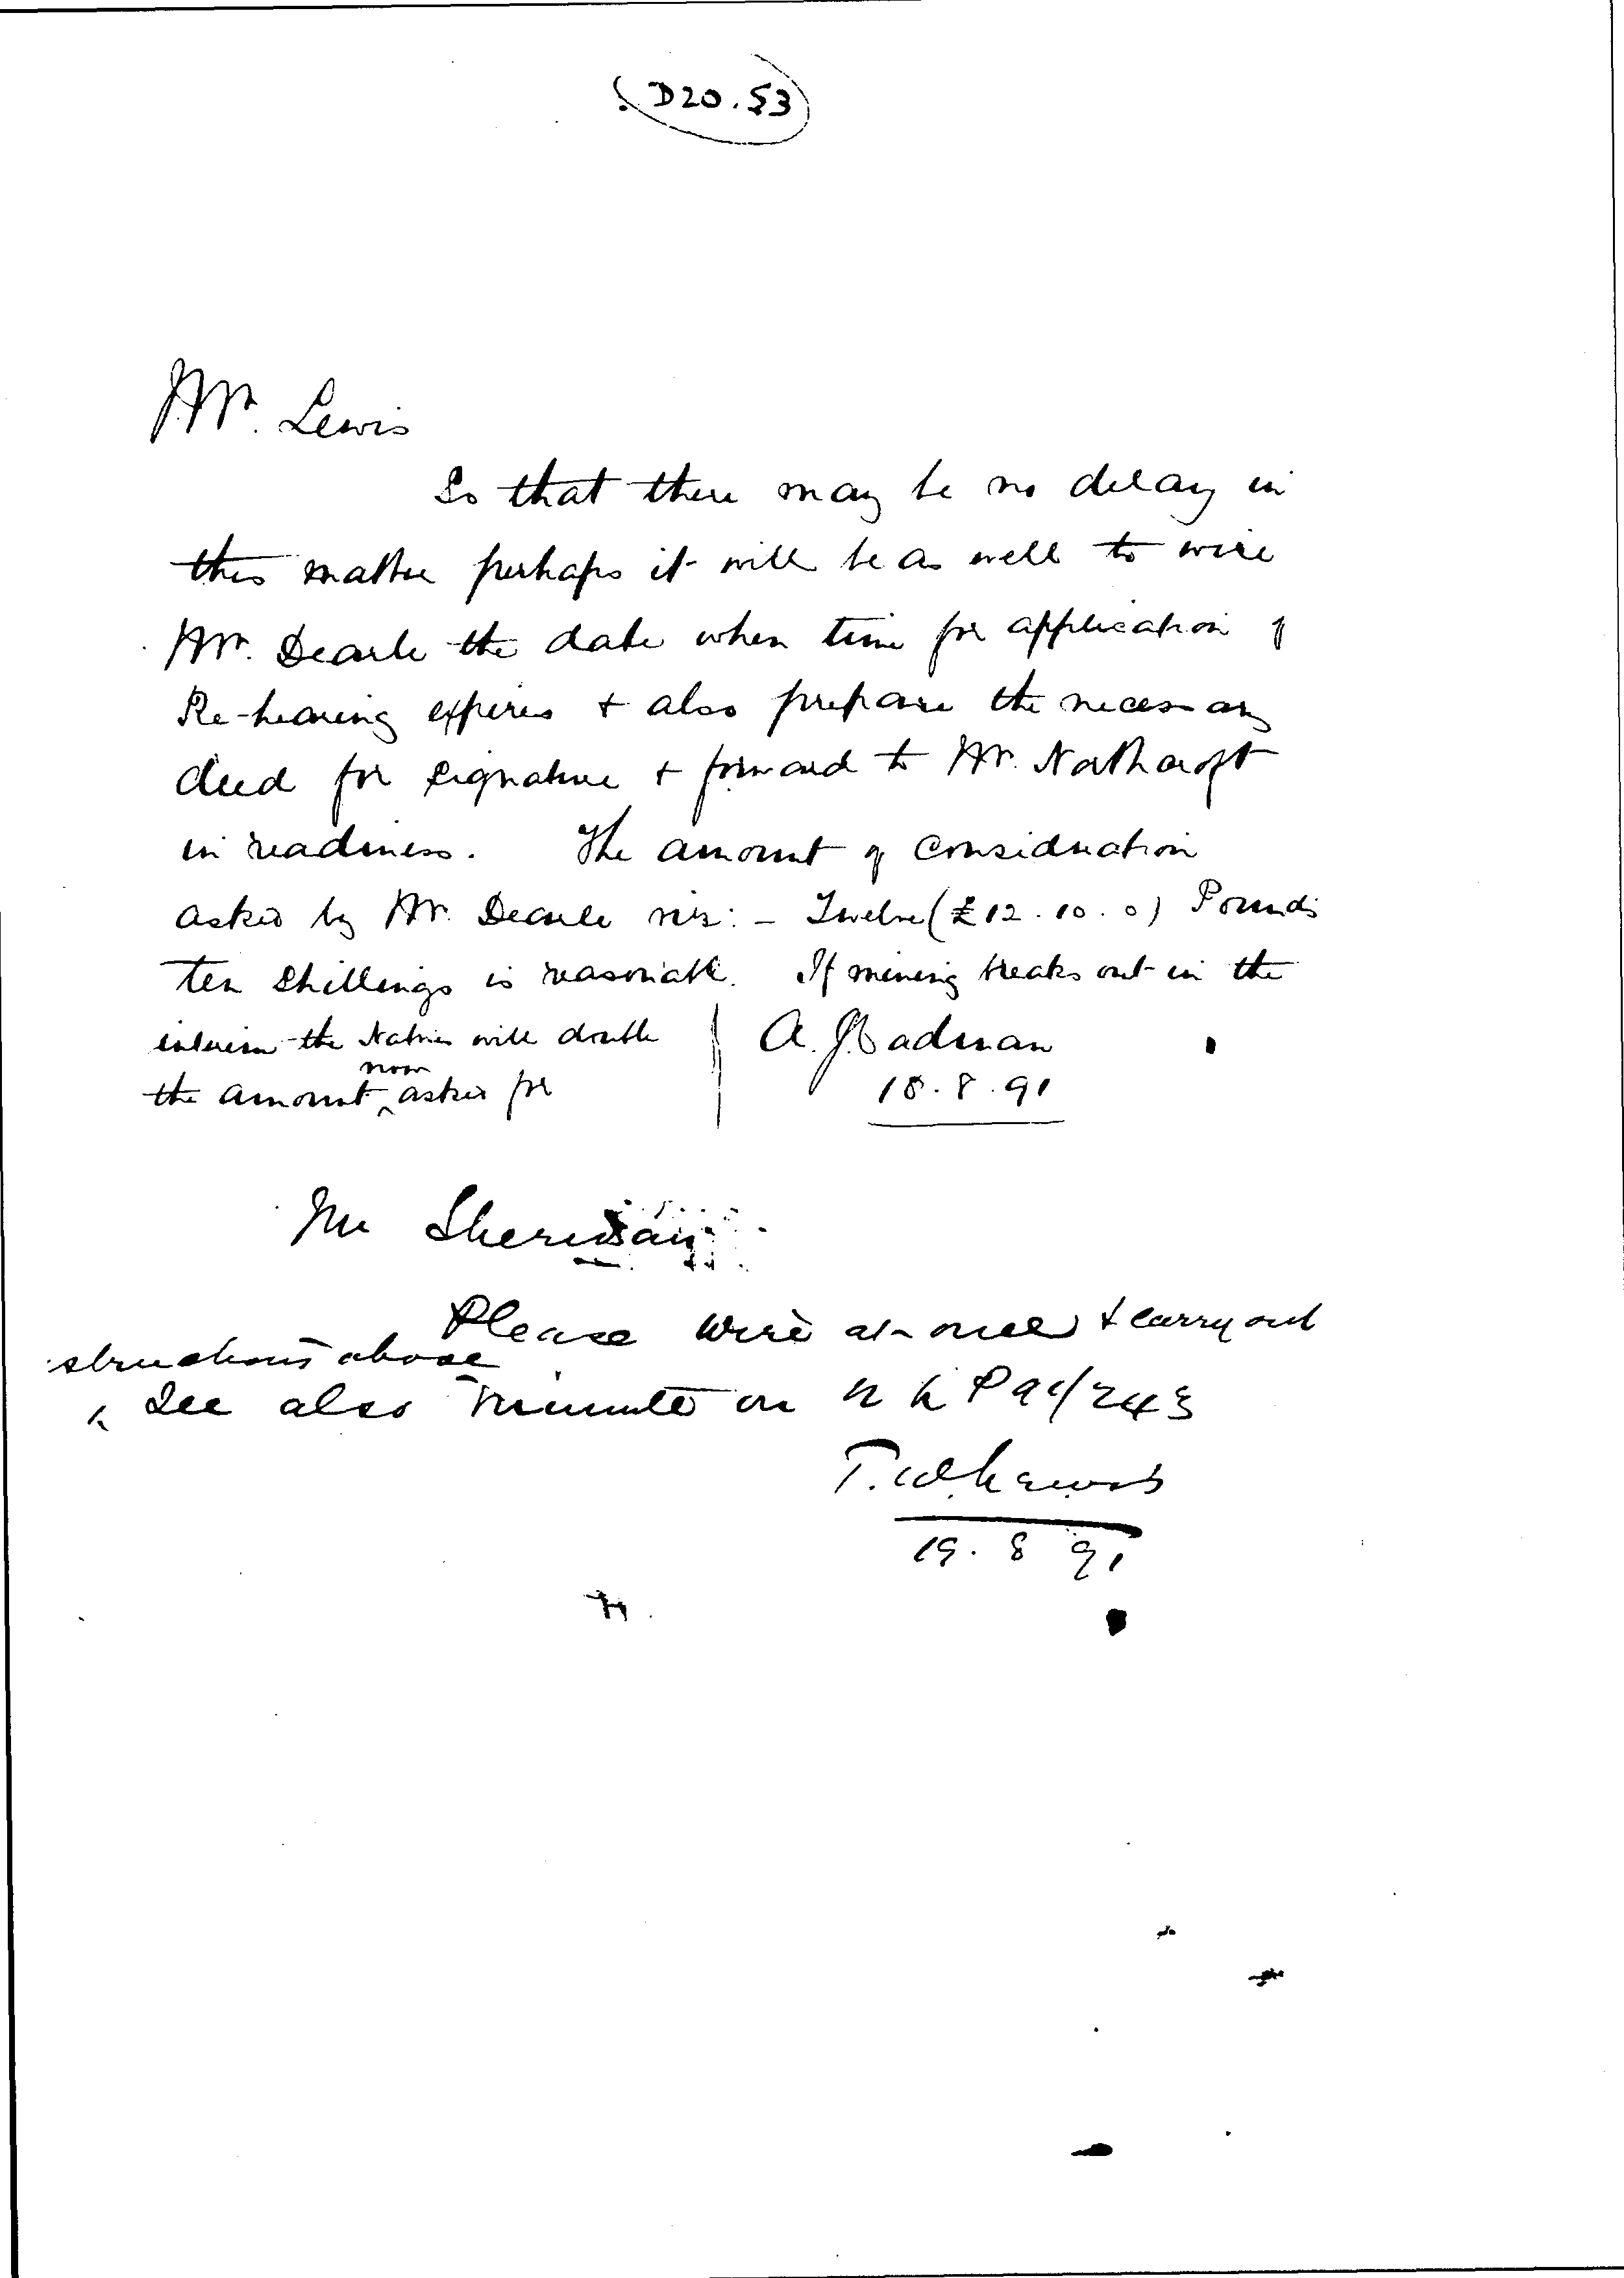 D20.53
Mr. Lewis
So that there may be no delay in
this matter perhaps it will be as well to wire
Mr. Dearle the date when time for application of
Re-hearing expires + also prepare the necessary
deed for signature + forward to Mr. Northcroft
in readiness. The amount of consideration
asked by Mr. Dearle viz: - Twelve (£12.10.0) Pounds
ten shillings is reasonable. If mining breaks out in the
interim the Natives will double
the amount now asked for
A. J. Cadman
18.8.91
Mr Sheridan
Please wire at once & carry out
structions above
See also minute on N L P 91/243
T. W. Lewis
19. 8 91